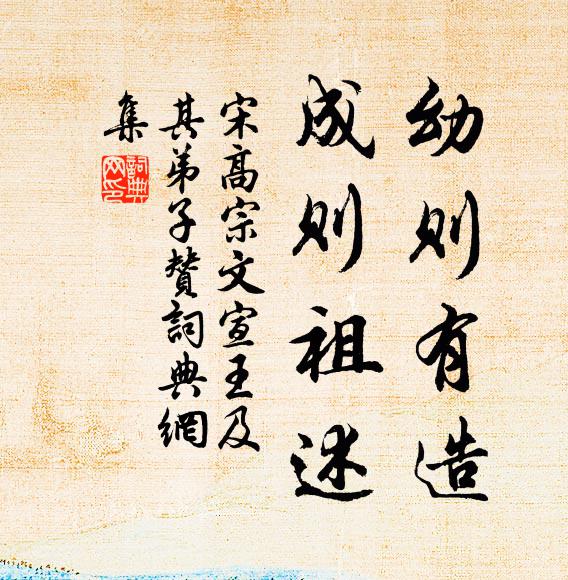 幼则有造
成则祖述
宋高宗文宣王及
其弟子赞词典網
集
詞典
网印